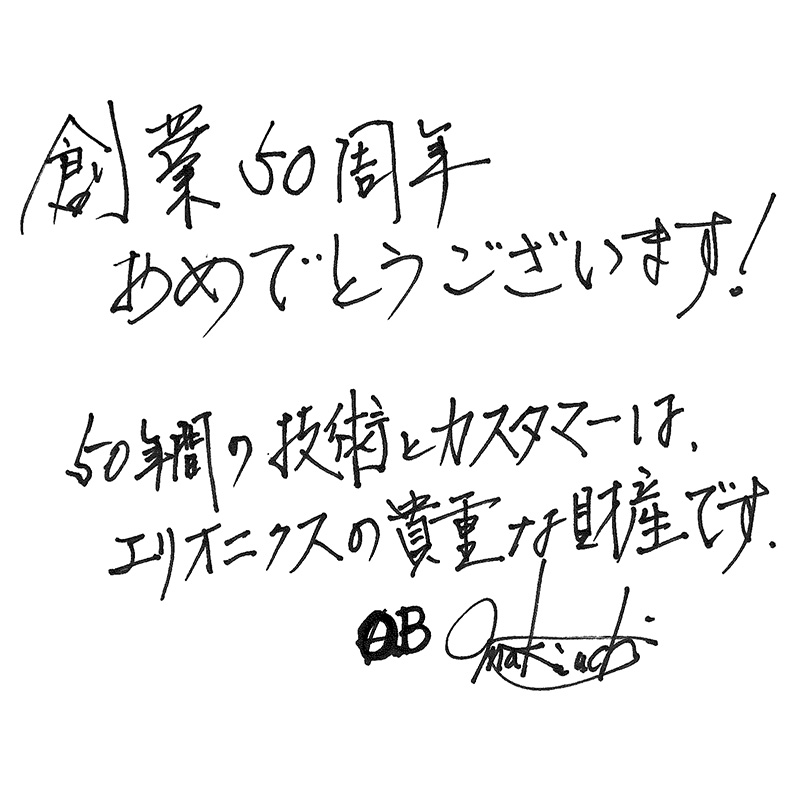 創業50周年
おめでとうございます!
50年間の技術とカスタマーは、
エリオニクスの貴重な財産です.
OB